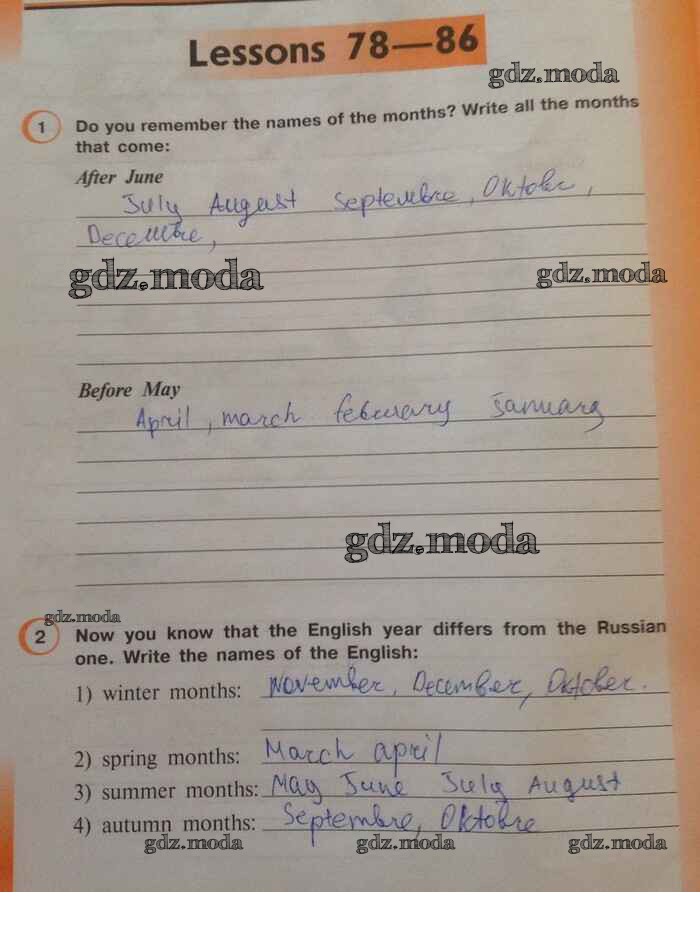 Lessons 78—86
gdz.moda
1 Do you remember the names of the months? Write all the months
that come:
After June
July August Septembre, Oktobr,
Decembre,
gdz.moda gdz.moda
Before May
April, march february January
gdz.moda
gdz.moda
2 Now you know that the English year differs from the Russian
one. Write the names of the English:
1) winter months: November, December, Oktober.
2) spring months: March april
3) summer months: May June July August
4) autumn months: Septembre, Oktobre
gdz.moda gdz.moda gdz.moda